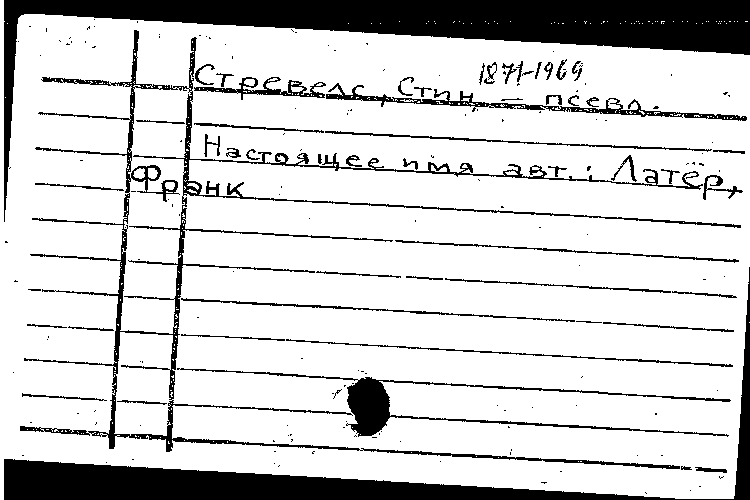 1871-1969
Стревелс, Стин, — псевд.
Настоящее имя авт.: Латёр,
Франк